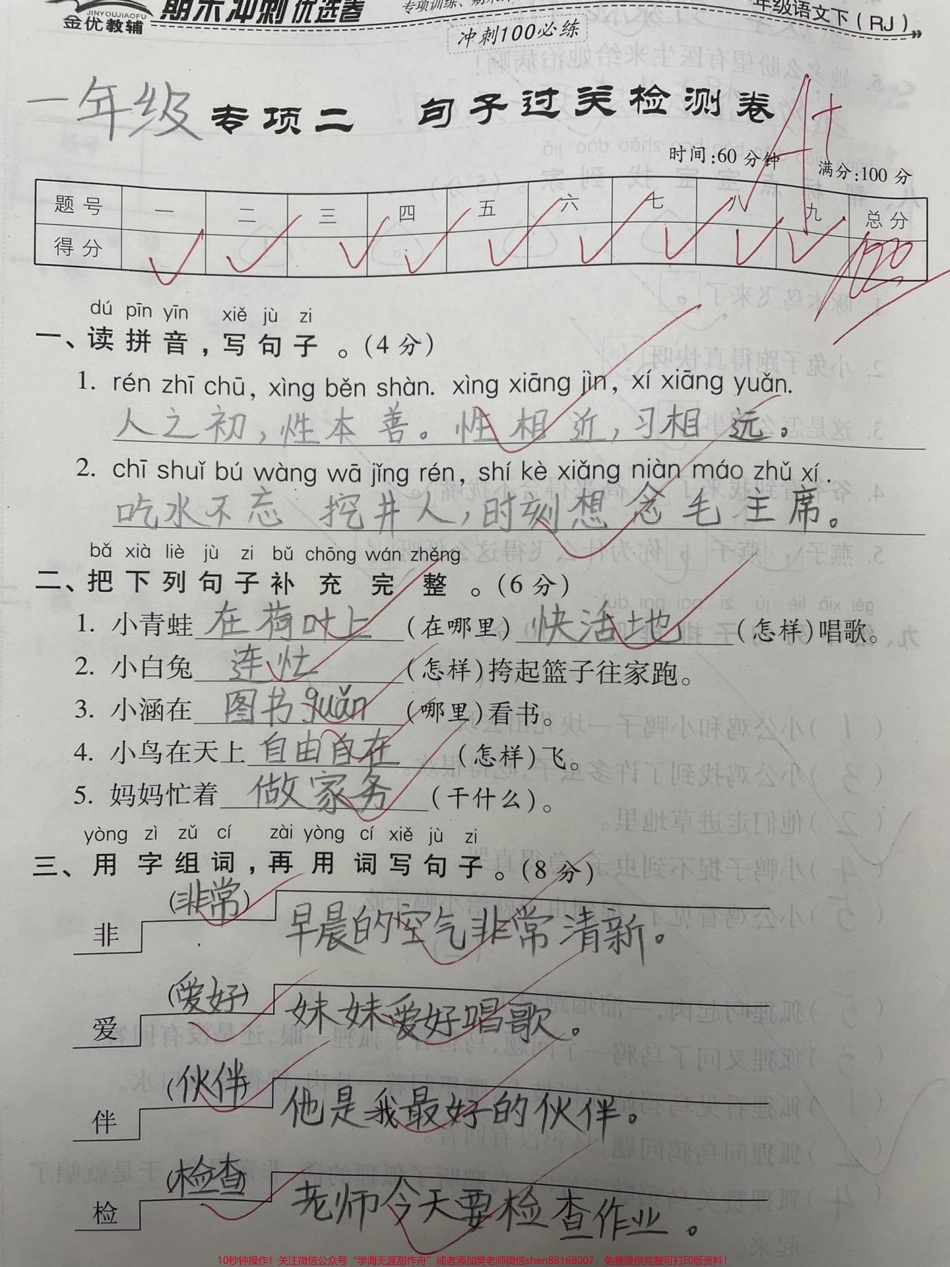 JINYOUJIAOFU
金优教辅
期末冲刺优选卷
年级语文下(RJ)
冲刺100必练
一年级 专项二 句子过关检测卷
A+
时间:60分钟 满分:100分
题号 一 二 三 四 五 六 七 八 九 总分
得分 100
dú pīn yīn xiě jù zi
一、读拼音,写句子。(4分)
1. rén zhī chū, xìng běn shàn. xìng xiāng jìn, xí xiāng yuǎn.
人之初,性本善。性相近,习相远。
2. chī shuǐ bú wàng wā jǐng rén, shí kè xiǎng niàn máo zhǔ xí.
吃水不忘挖井人,时刻想念毛主席。
bǎ xià liè jù zi bǔ chōng wán zhěng
二、把下列句子补充完整。(6分)
1. 小青蛙在荷叶上(在哪里)快活地(怎样)唱歌。
2. 小白兔连忙(怎样)挎起篮子往家跑。
3. 小涵在图书guǎn(哪里)看书。
4. 小鸟在天上自由自在(怎样)飞。
5. 妈妈忙着做家务(干什么)。
yòng zì zǔ cí zài yòng cí xiě jù zi
三、用字组词,再用词写句子。(8分)
非 (非常) 早晨的空气非常清新。
爱 (爱好) 妹妹爱好唱歌。
伴 (伙伴) 他是我最好的伙伴。
检 (检查) 老师今天要检查作业。
10秒钟操作!关注微信公众号“学海无涯甜作舟”或者添加樊老师微信shen88168007,免费提供完整可打印版资料!